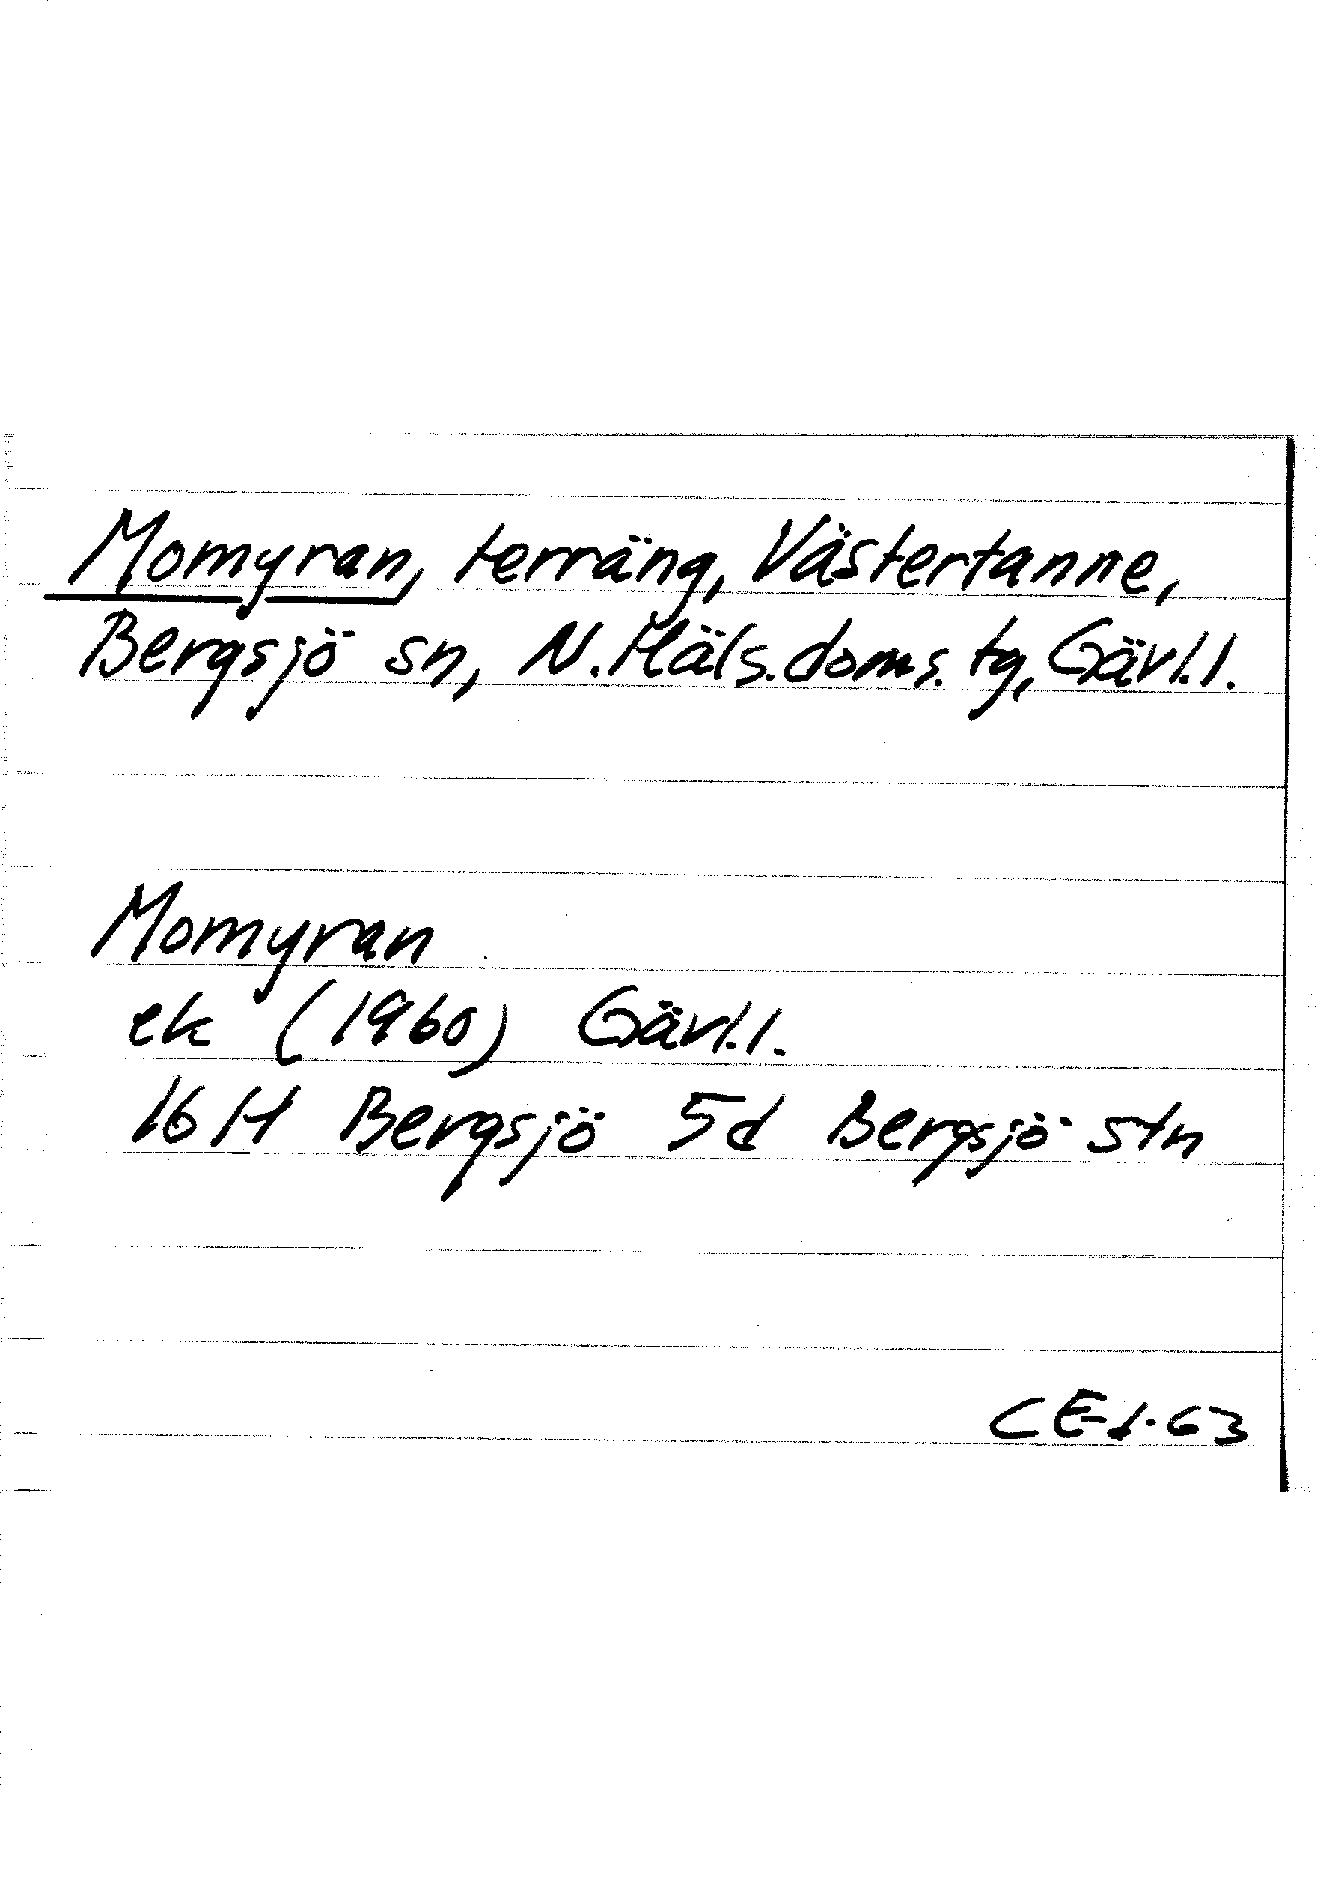 Momyran, terräng, Västertanne,
Bergsjö sn, N. Häls. doms. tg, Gävl. l.
Momyran
ek (1960) Gävl. l.
16 H Bergsjö 5d Bergsjö stn
CE-1-63